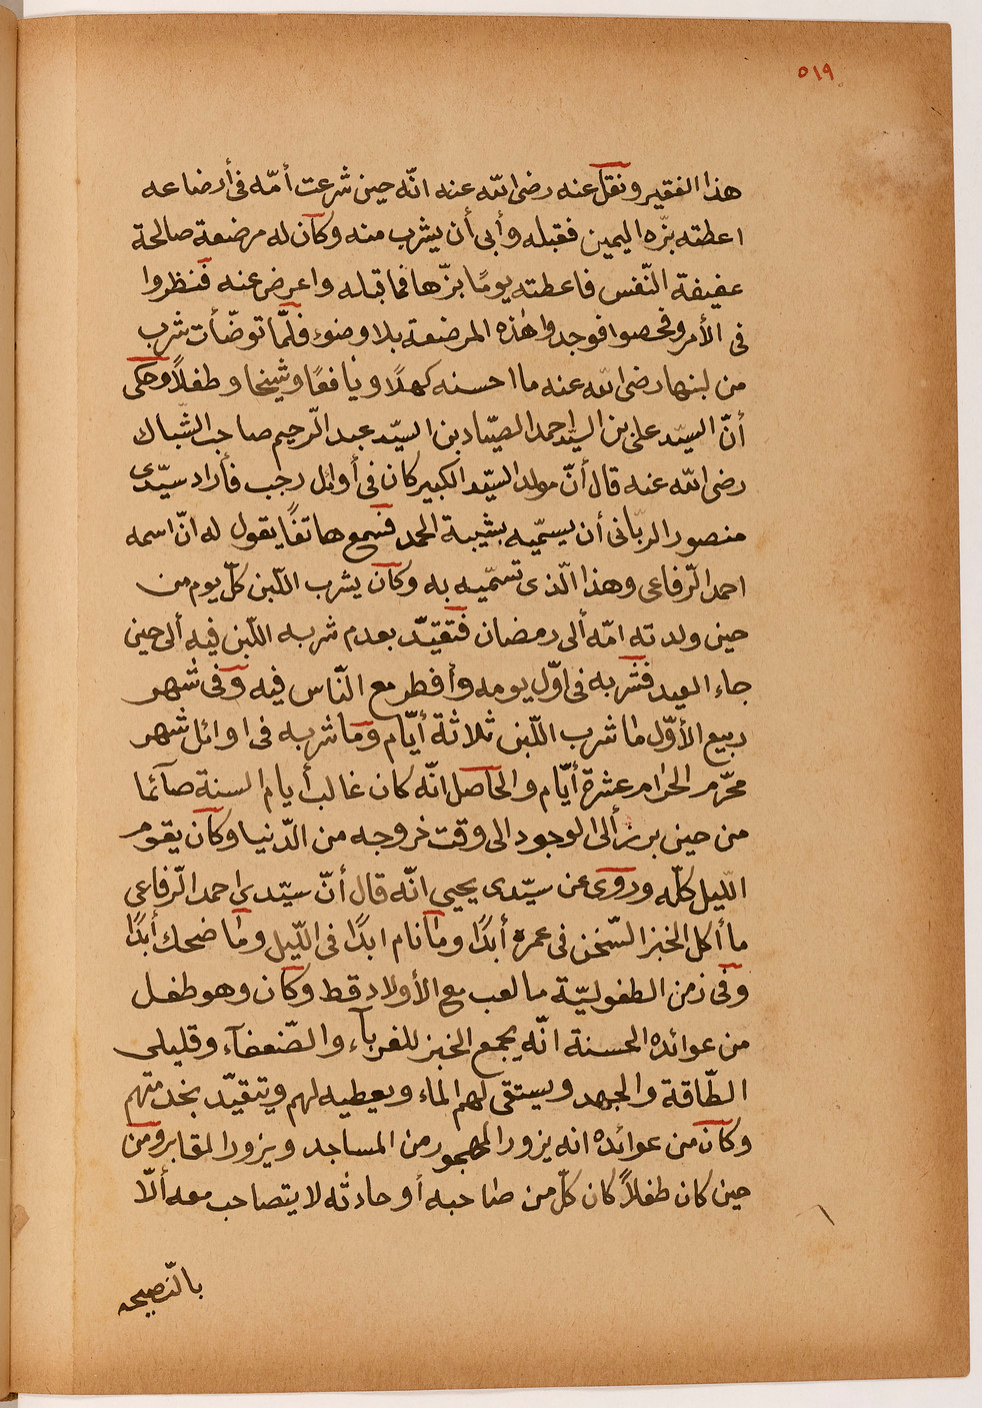 ٥١٩
هذا الفقير ونقل عنه رضى الله عنه انّه حين شرعت أمّه فى أرضاعه
اعطته بزّه اليمين فقبله وأبى أن يشرب منه وكان له مرضعة صالحة
عفيفة النّفس فاعطته يومًا بزّها فما قبله واعرض عنه فنظروا
فى الأمر وفحصوا فوجدوا هذه المرضعة بلا وضوء فلمّا توضّأت شرب
من لبنها رضى الله عنه ما احسنه كهلًا ويافعًا وشيخا وطفلًا وحكى
أنّ السيّد على بن السيّد احمد الصيّاد بن السيّد عبد الرّحيم صاحب الشّباك
رضى الله عنه قال أنّ مولد السيّد الكبير كان فى أوائل رجب فأراد سيّدى
منصور الربّانى أن يسمّيه بشيبة الحمد فسمع هاتفًا يقول له انّ اسمه
احمد الرّفاعى وهذا الّذى تسمّيه به وكان يشرب اللّبن كلّ يوم من
حين ولدته امّه ألى رمضان فتقيّد بعدم شربه اللّبن فيه ألى حين
جاء العيد فشربه فى اوّل يومه وأفطر مع النّاس فيه وفى شهر
ربيع الأوّل ما شرب اللّبن ثلاثة أيّام وما شربه فى اوائل شهر
محرّم الحرام عشرة أيّام والحاصل انّه كان غالب أيام السنة صآئما
من حين برز ألى الوجود الى وقت خروجه من الدّنيا وكان يقوم
اللّيل كلّه وروى عن سيّدى يحيى انّه قال أنّ سيّدى احمد الرّفاعى
ما أكل الخبز السّخن فى عمره أبدًا وما نام ابدًا فى اللّيل وما ضحك أبدًا
وفى زمن الطفوليّة ما لعب مع الأولاد قط وكان وهو طفل
من عوائده الحسنة انّه يجمع الخبز للغربآء والضّعفآء وقليلى
الطّاقة والجهد ويستقى لهم الماء ويعطيه لهم ويتقيّد بخدمتهم
وكان من عوائده انه يزور المهجور من المساجد ويزور المقابر ومن
حين كان طفلاً كان كلّ من صاحبه أو حادثه لا يتصاحب معه ألّا
بالنّصيحه